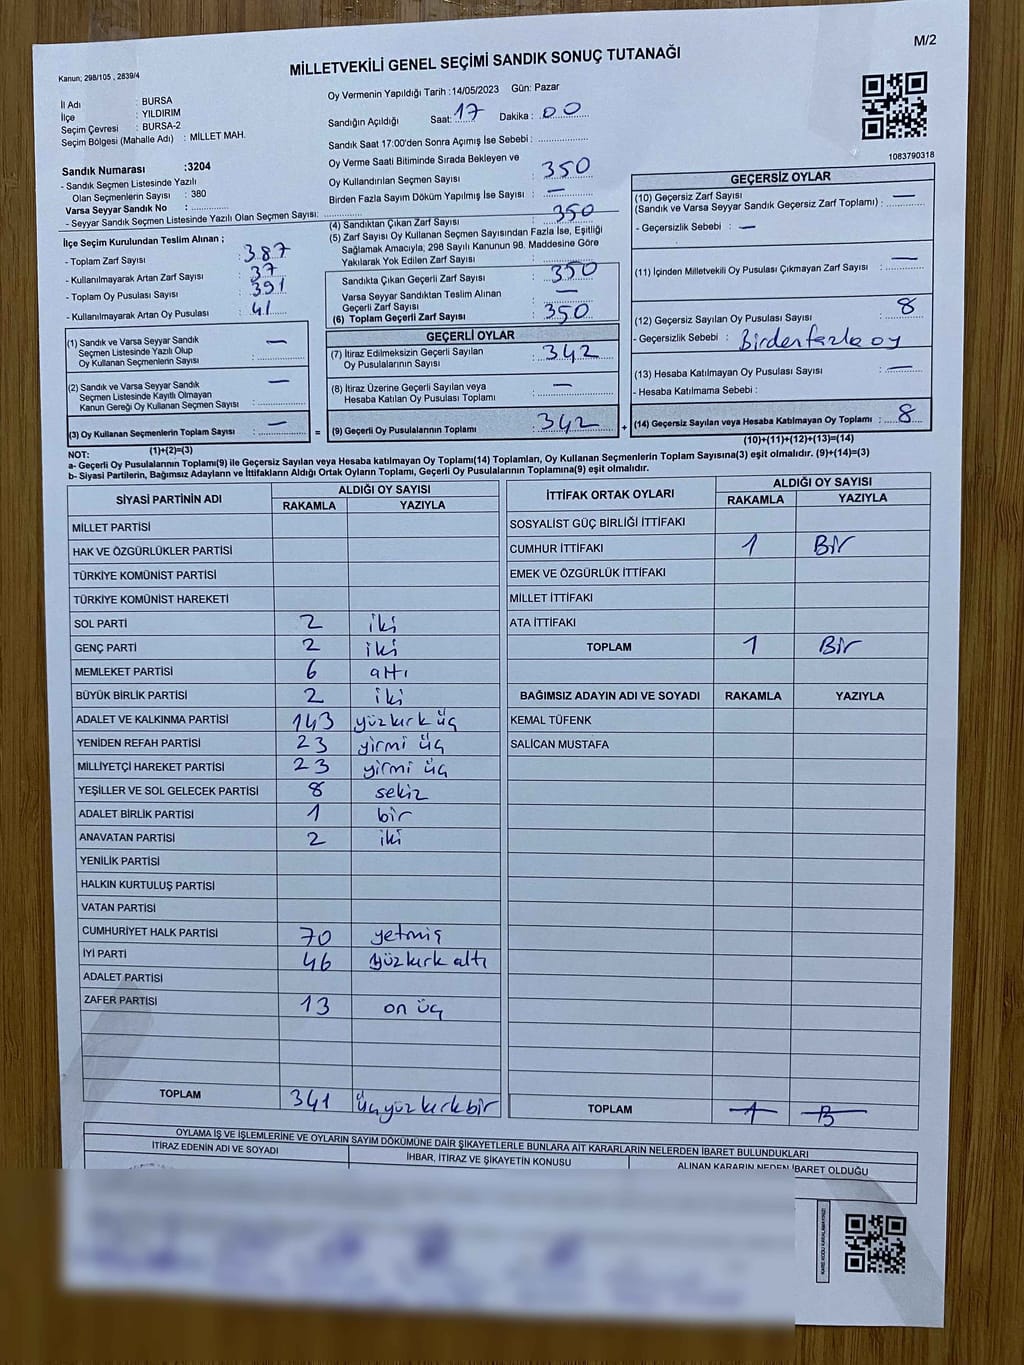 M/2
Kanun; 298/105 , 2839/4
MİLLETVEKİLİ GENEL SEÇİMİ SANDIK SONUÇ TUTANAĞI
İl Adı : BURSA
İlçe : YILDIRIM
Seçim Çevresi : BURSA-2
Seçim Bölgesi (Mahalle Adı) : MİLLET MAH.
Sandık Numarası :3204
- Sandık Seçmen Listesinde Yazılı
Olan Seçmenlerin Sayısı : 380
Varsa Seyyar Sandık No :
- Seyyar Sandık Seçmen Listesinde Yazılı Olan Seçmen Sayısı:
İlçe Seçim Kurulundan Teslim Alınan ;
- Toplam Zarf Sayısı : 387
- Kullanılmayarak Artan Zarf Sayısı : 37
- Toplam Oy Pusulası Sayısı : 391
- Kullanılmayarak Artan Oy Pusulası : 41
(1) Sandık ve Varsa Seyyar Sandık
Seçmen Listesinde Yazılı Olup
Oy Kullanan Seçmenlerin Sayısı : —
(2) Sandık ve Varsa Seyyar Sandık
Seçmen Listesinde Kayıtlı Olmayan
Kanun Gereği Oy Kullanan Seçmen Sayısı : —
(3) Oy Kullanan Seçmenlerin Toplam Sayısı : —
(1)+(2)=(3)
Oy Vermenin Yapıldığı Tarih :14/05/2023 Gün: Pazar
Sandığın Açıldığı Saat: 17 Dakika : 00
Sandık Saat 17:00'den Sonra Açımış İse Sebebi :
Oy Verme Saati Bitiminde Sırada Bekleyen ve
Oy Kullandırılan Seçmen Sayısı : 350
Birden Fazla Sayım Döküm Yapılmış İse Sayısı : —
(4) Sandıktan Çıkan Zarf Sayısı : 350
(5) Zarf Sayısı Oy Kullanan Seçmen Sayısından Fazla İse, Eşitliği
Sağlamak Amacıyla, 298 Sayılı Kanunun 98. Maddesine Göre
Yakılarak Yok Edilen Zarf Sayısı :
Sandıkta Çıkan Geçerli Zarf Sayısı : 350
Varsa Seyyar Sandıktan Teslim Alınan
Geçerli Zarf Sayısı : —
(6) Toplam Geçerli Zarf Sayısı : 350
GEÇERLİ OYLAR
(7) İtiraz Edilmeksizin Geçerli Sayılan
Oy Pusulalarının Sayısı : 342
(8) İtiraz Üzerine Geçerli Sayılan veya
Hesaba Katılan Oy Pusulası Toplamı : —
= (9) Geçerli Oy Pusulalarının Toplamı : 342 +
1083790318
GEÇERSİZ OYLAR
(10) Geçersiz Zarf Sayısı
(Sandık ve Varsa Seyyar Sandık Geçersiz Zarf Toplamı) : —
- Geçersizlik Sebebi : —
(11) İçinden Milletvekili Oy Pusulası Çıkmayan Zarf Sayısı : —
(12) Geçersiz Sayılan Oy Pusulası Sayısı : 8
- Geçersizlik Sebebi : Birden fazla oy
(13) Hesaba Katılmayan Oy Pusulası Sayısı : —
- Hesaba Katılmama Sebebi :
(14) Geçersiz Sayılan veya Hesaba Katılmayan Oy Toplamı : 8
(10)+(11)+(12)+(13)=(14)
NOT:
a- Geçerli Oy Pusulalarının Toplamı(9) ile Geçersiz Sayılan veya Hesaba katılmayan Oy Toplamı(14) Toplamları, Oy Kullanan Seçmenlerin Toplam Sayısına(3) eşit olmalıdır. (9)+(14)=(3)
b- Siyasi Partilerin, Bağımsız Adayların ve İttifakların Aldığı Ortak Oyların Toplamı, Geçerli Oy Pusulalarının Toplamına(9) eşit olmalıdır.
SİYASİ PARTİNİN ADI ALDIĞI OY SAYISI
RAKAMLA YAZIYLA
MİLLET PARTİSİ
HAK VE ÖZGÜRLÜKLER PARTİSİ
TÜRKİYE KOMÜNİST PARTİSİ
TÜRKİYE KOMÜNİST HAREKETİ
SOL PARTİ 2 iki
GENÇ PARTİ 2 iki
MEMLEKET PARTİSİ 6 altı
BÜYÜK BİRLİK PARTİSİ 2 iki
ADALET VE KALKINMA PARTİSİ 143 yüzkırk üç
YENİDEN REFAH PARTİSİ 23 yirmi üç
MİLLİYETÇİ HAREKET PARTİSİ 23 yirmi üç
YEŞİLLER VE SOL GELECEK PARTİSİ 8 sekiz
ADALET BİRLİK PARTİSİ 1 bir
ANAVATAN PARTİSİ 2 iki
YENİLİK PARTİSİ
HALKIN KURTULUŞ PARTİSİ
VATAN PARTİSİ
CUMHURİYET HALK PARTİSİ 70 yetmiş
İYİ PARTİ 46 yüzkırk altı
ADALET PARTİSİ
ZAFER PARTİSİ 13 on üç
TOPLAM 341 üçyüz kırk bir
İTTİFAK ORTAK OYLARI ALDIĞI OY SAYISI
RAKAMLA YAZIYLA
SOSYALİST GÜÇ BİRLİĞİ İTTİFAKI
CUMHUR İTTİFAKI 1 Bir
EMEK VE ÖZGÜRLÜK İTTİFAKI
MİLLET İTTİFAKI
ATA İTTİFAKI
TOPLAM 1 Bir
BAĞIMSIZ ADAYIN ADI VE SOYADI RAKAMLA YAZIYLA
KEMAL TÜFENK
SALİCAN MUSTAFA
TOPLAM 1 B
OYLAMA İŞ VE İŞLEMLERİNE VE OYLARIN SAYIM DÖKÜMÜNE DAİR ŞİKAYETLERLE BUNLARA AİT KARARLARIN NELERDEN İBARET BULUNDUKLARI
İTİRAZ EDENİN ADI VE SOYADI İHBAR, İTİRAZ VE ŞİKAYETİN KONUSU ALINAN KARARIN NEDEN İBARET OLDUĞU